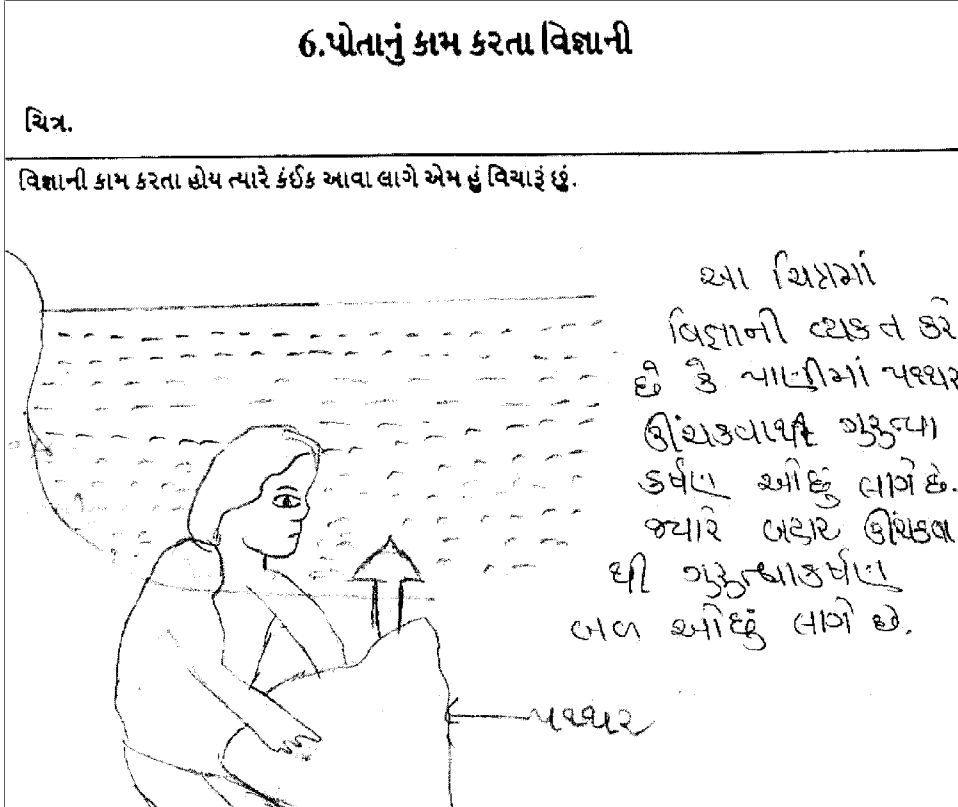 6.પોતાનું કામ કરતા વિજ્ઞાની
ચિત્ર.
વિજ્ઞાની કામ કરતા હોય ત્યારે કંઈક આવા લાગે એમ હું વિચારું છું.
આ ચિત્રમાં
વિજ્ઞાની વ્યકત કરે
છે કે પાણીમાં પથ્થર
ઊંચકવાથી ગુરુત્વા
કર્ષણ ઓછું લાગે છે.
જ્યારે બહાર ઊંચકવા
થી ગુરુત્વાકર્ષણ
બળ ઓછું લાગે છે.
પથ્થર